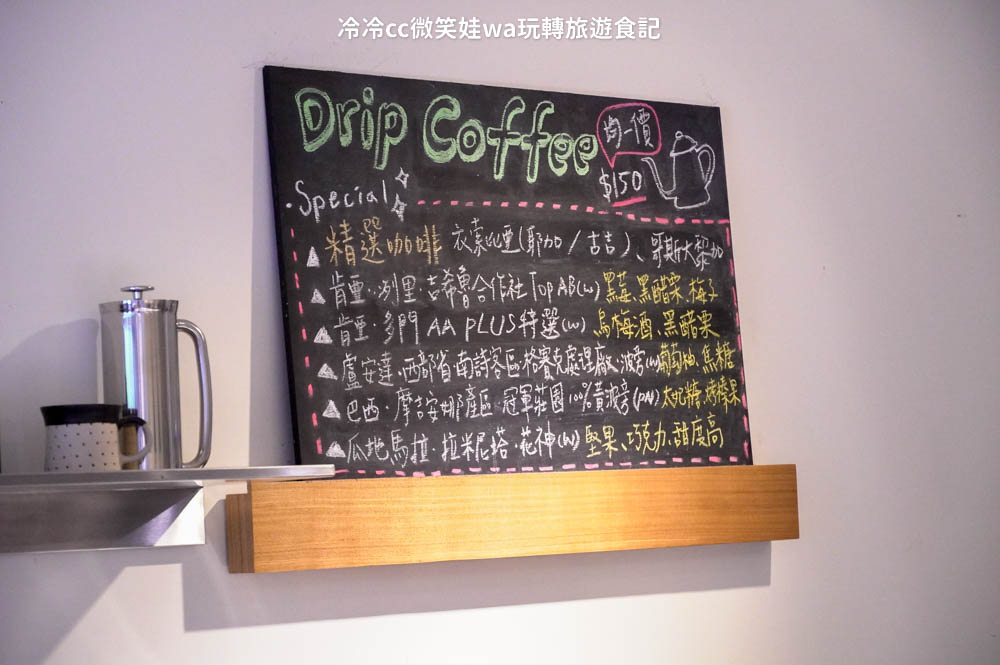 冷冷cc微笑娃wa玩轉旅遊食記
Drip Coffee
均一價
$150
·Special
▲精選咖啡 衣索比亞(耶加/古吉)、哥斯大黎加
▲肯亞·冽里 吉希魯合作社 Top AB(w) 黑莓、黑醋栗、梅子
▲肯亞·多門 AA PLUS 特選(w) 烏梅酒、黑醋栗
▲盧安達·西部省南詩客區·格賽克處理廠·波旁(w) 葡萄柚、焦糖
▲巴西·摩吉安娜產區·冠軍莊園100%黃波旁(PN) 太妃糖、烤榛果
▲瓜地馬拉·拉米尼塔·花神(w) 堅果、巧克力、甜度高